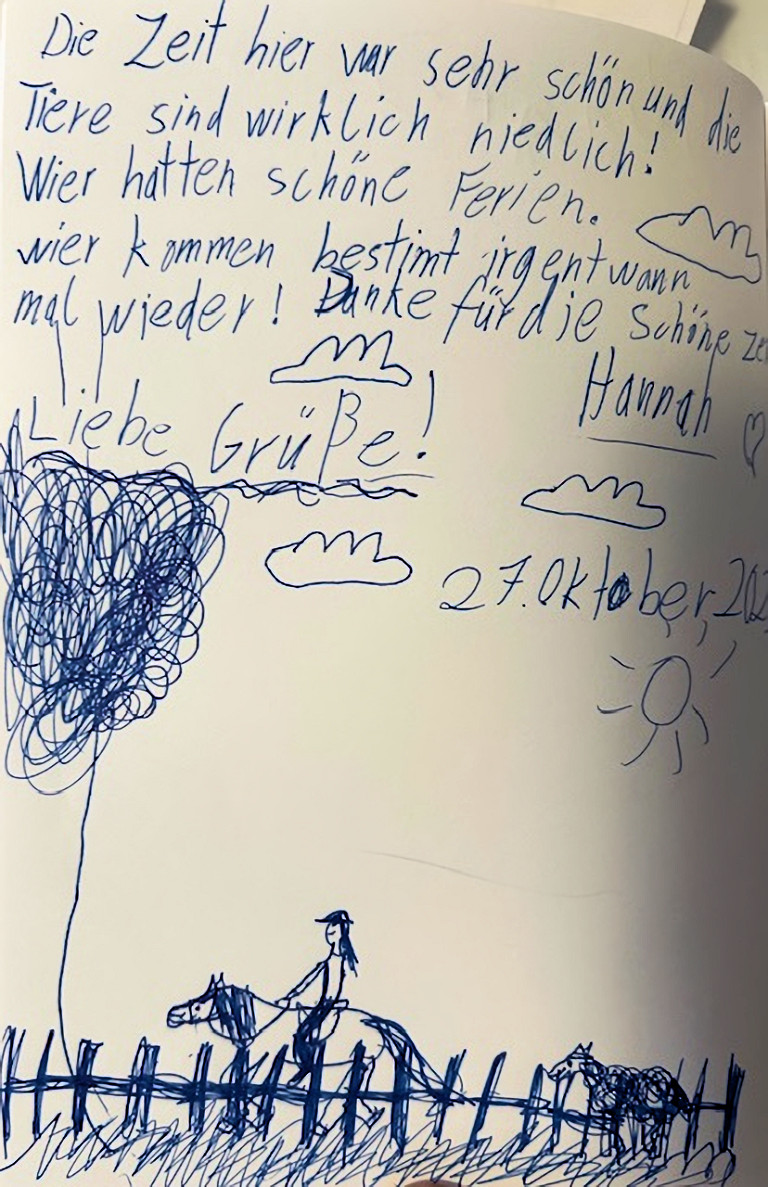 Die Zeit hier war sehr schön und die
Tiere sind wirklich niedlich!
Wier hatten schöne Ferien.
wier kommen bestimt irgentwann
mal wieder! Danke für die Schöne
Hannah
Liebe Grüße!
27. Oktober